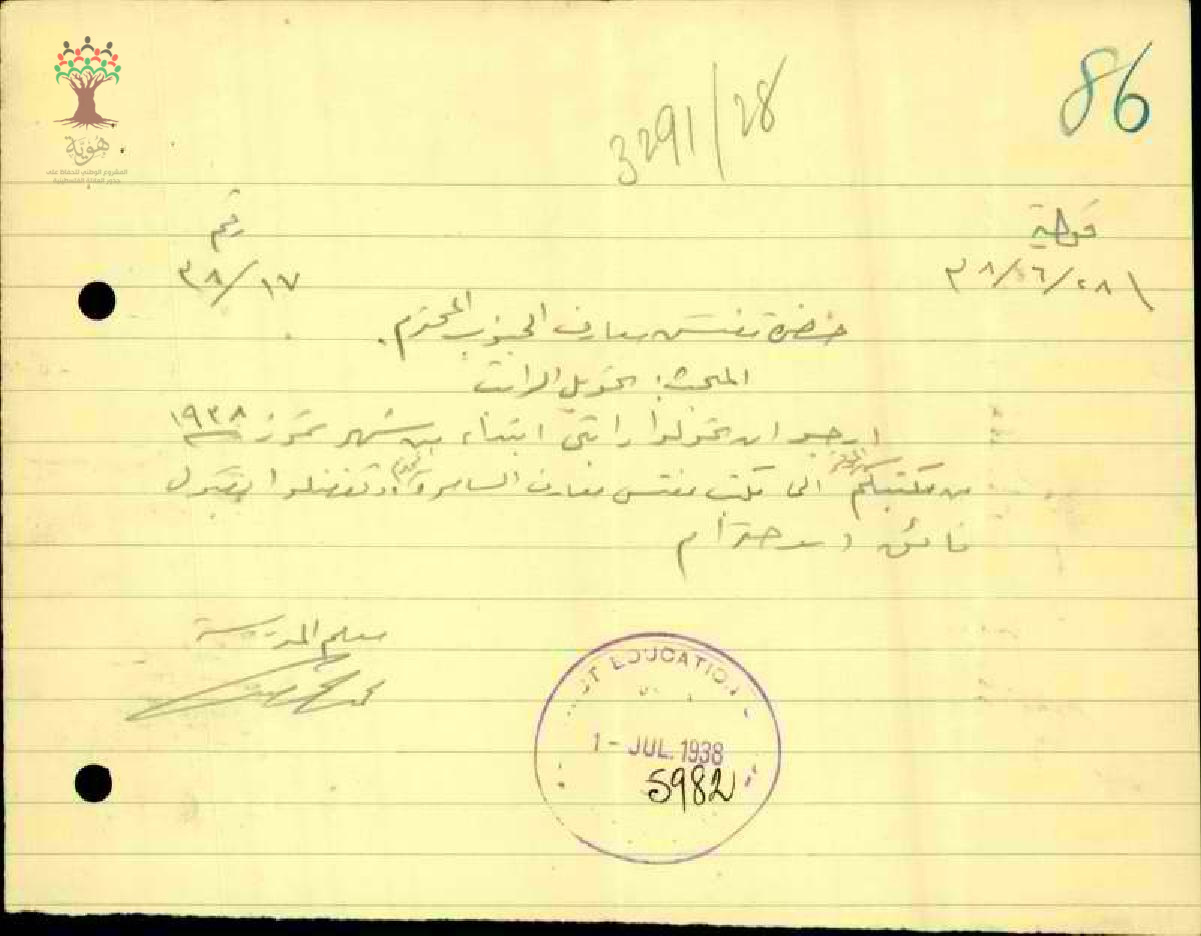 86
3291/28
هُوِيَّة
المشروع الوطني للحفاظ على
جذور العائلة الفلسطينية
رقم
٣٨/١٧
٣٨/٦/٢٨
حضرة مفتش معارف الجنوب المحترم.
المبحث: تحويل الراتب
ارجو ان تحولوا راتبي ابتداء من شهر تموز ١٩٣٨
من مكتبكم الى مكتب مفتش معارف السامرة وتفضلوا بقبول
فائق الاحترام
معلم المدرسة
EDUCATION
1 - JUL. 1938
5982